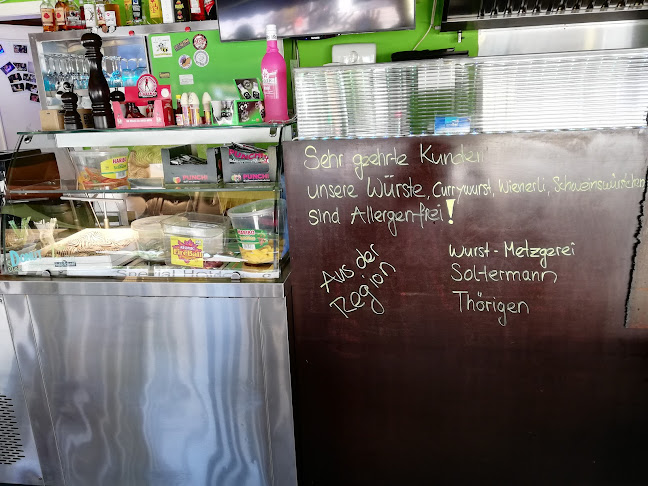 Sehr geehrte Kunden
unsere Würste, Currywurst, Wienerli, Schweinswürstchen
sind Allergenfrei!
Aus der
Region
Wurst-Metzgerei
Soltermann
Thörigen
HARIBO
PUNCH
PUNCH
HARIBO
FireBall
Special Hot